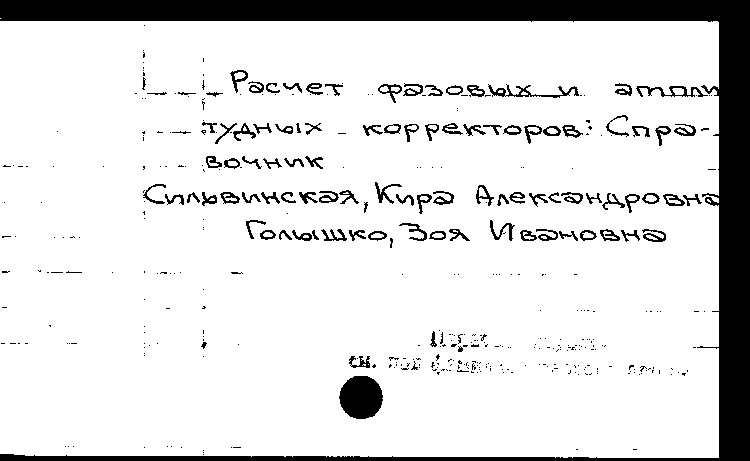 Расчет фазовых и ампли
тудных корректоров: Спра-
вочник
Сильвинская, Кира Александровна
Голышко, Зоя Ивановна
см. под